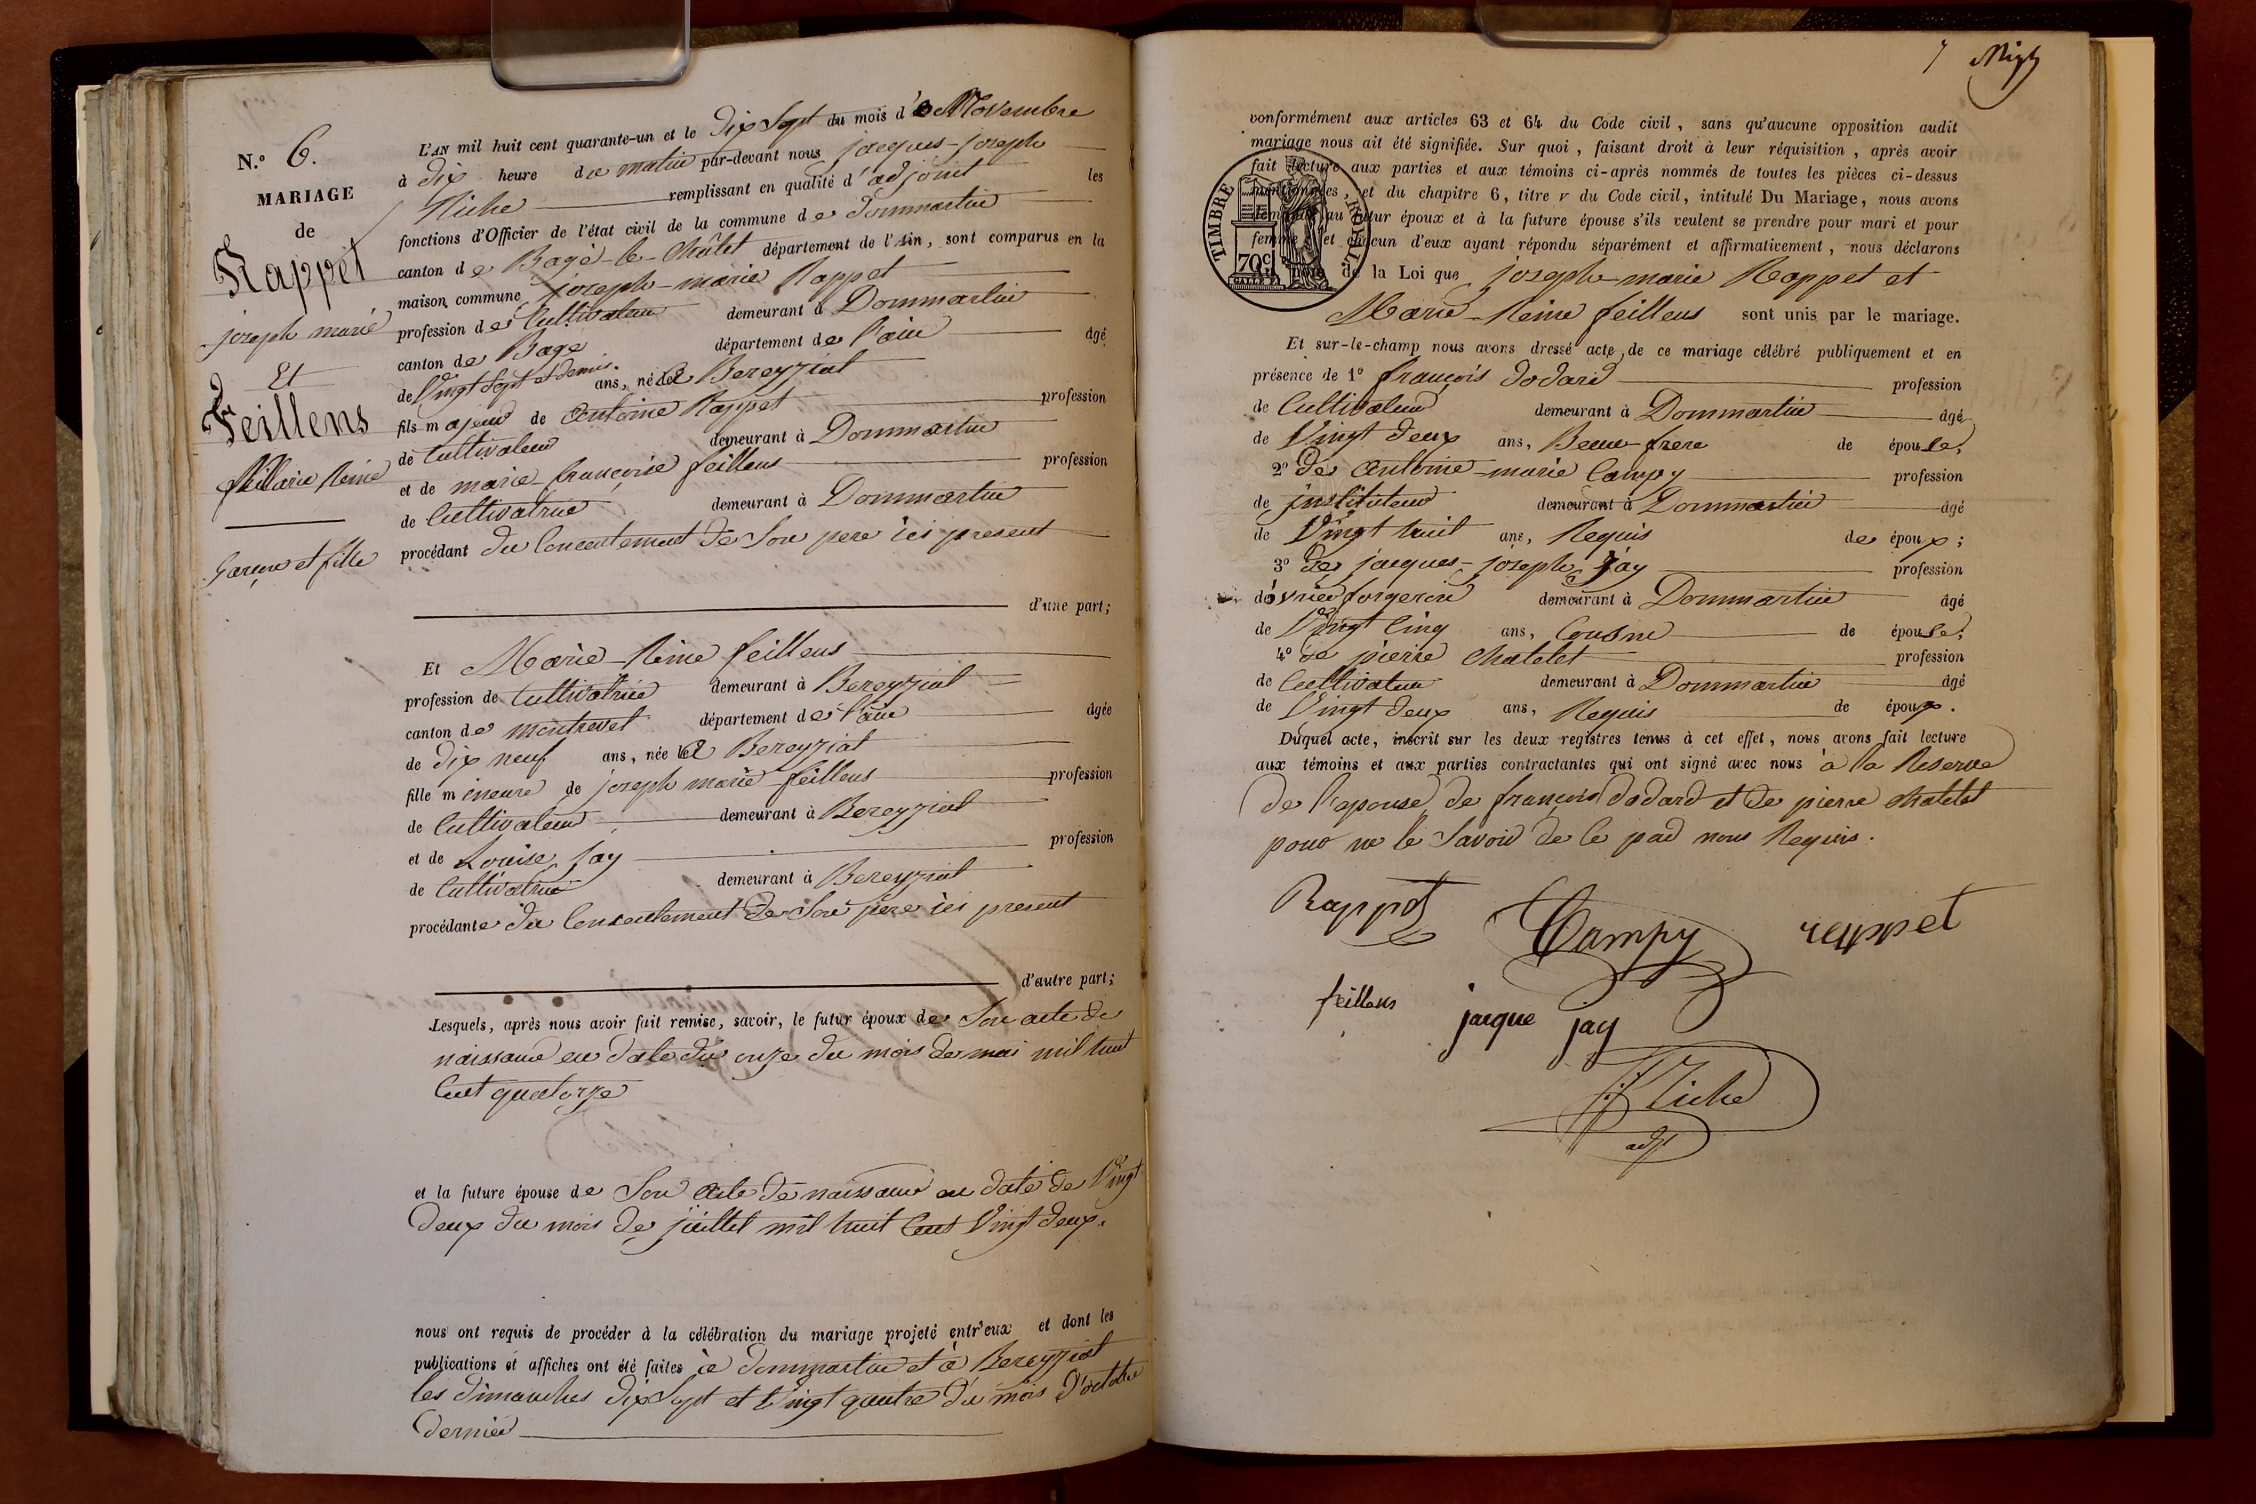 N.º 6.
MARIAGE
de
Rappet
joseph marie
Et
Feillens
Marie Reine
Garçon et fille
L'AN mil huit cent quarante-un et le dix Sept du mois de Novembre
à dix heure du matin par-devant nous jacques-joseph
Niche remplissant en qualité d'adjoint les
fonctions d'Officier de l'état civil de la commune de Dommartin
canton de Bagé-le-Châtel département de l'Ain, sont comparus en la
maison commune joseph-marie Rappet
profession de Cultivateur demeurant à Dommartin
canton de Bagé département de l'ain âgé
de Vingt Sept et demis. ans, né à Bereyziat
fils majeur de antoine Rappet profession
de Cultivateur demeurant à Dommartin
et de marie françoise feillens profession
de Cultivatrice demeurant à Dommartin
procédant du Concentement de Son pere ici present
d'une part;
Et Marie-Reine feillens
profession de Cultivatrice demeurant à Bereyziat
canton de montrevel département de l'ain âgée
de dix neuf ans, née à Bereyziat
fille mineure de joseph marie feillens profession
de Cultivateur demeurant à Bereyziat
et de Louise jay profession
de Cultivatrice demeurant à Bereyziat
procédante du Consentement de Son pere ici present
d'autre part;
Lesquels, après nous avoir fait remise, savoir, le futur époux de Son acte de
naissance en date du onze du mois de mai mil huit
Cent quatorze
et la future épouse de Son acte de naissance en date de Vingt
deux du mois de juillet mil huit Cent Vingt deux.
nous ont requis de procéder à la célébration du mariage projeté entr'eux et dont les
publications et affiches ont été faites à dommartin et à Bereyziat
les dimanches dix Sept et Vingt quatre du mois d'octobre
dernier
7
conformément aux articles 63 et 64 du Code civil, sans qu'aucune opposition audit
mariage nous ait été signifiée. Sur quoi, faisant droit à leur réquisition, après avoir
fait lecture aux parties et aux témoins ci-après nommés de toutes les pièces ci-dessus
mentionnées, et du chapitre 6, titre v du Code civil, intitulé Du Mariage, nous avons
demandé au futur époux et à la future épouse s'ils veulent se prendre pour mari et pour
femme; et chacun d'eux ayant répondu séparément et affirmativement, nous déclarons
TIMBRE ROYAL
70c
nom de la Loi que joseph-marie Rappet et
Marie-Reine feillens sont unis par le mariage.
Et sur-le-champ nous avons dressé acte de ce mariage célébré publiquement et en
présence de 1º françois dodard profession
de Cultivateur demeurant à Dommartin âgé
de Vingt deux ans, Beau-frere de épouse;
2º de antoine-marie Campy profession
de instituteur demeurant à Dommartin âgé
de Vingt huit ans, Requis de époux;
3º de jacques-joseph jay profession
d'ovrier forgeron demeurant à Dommartin âgé
de Vingt Cinq ans, Cousne de épouse;
4º de pierre Chatelet profession
de Cultivateur demeurant à Dommartin âgé
de Vingt deux ans, Requis de époux.
Duquel acte, inscrit sur les deux registres tenus à cet effet, nous avons fait lecture
aux témoins et aux parties contractantes qui ont signé avec nous à la Reserve
de l'epouse, de françois dodard et de pierre Chatelet
pour ne le Savoir de ce par nous Requis.
Rappet
Campy
rappet
feillens
jacque jay
Niche
adjt